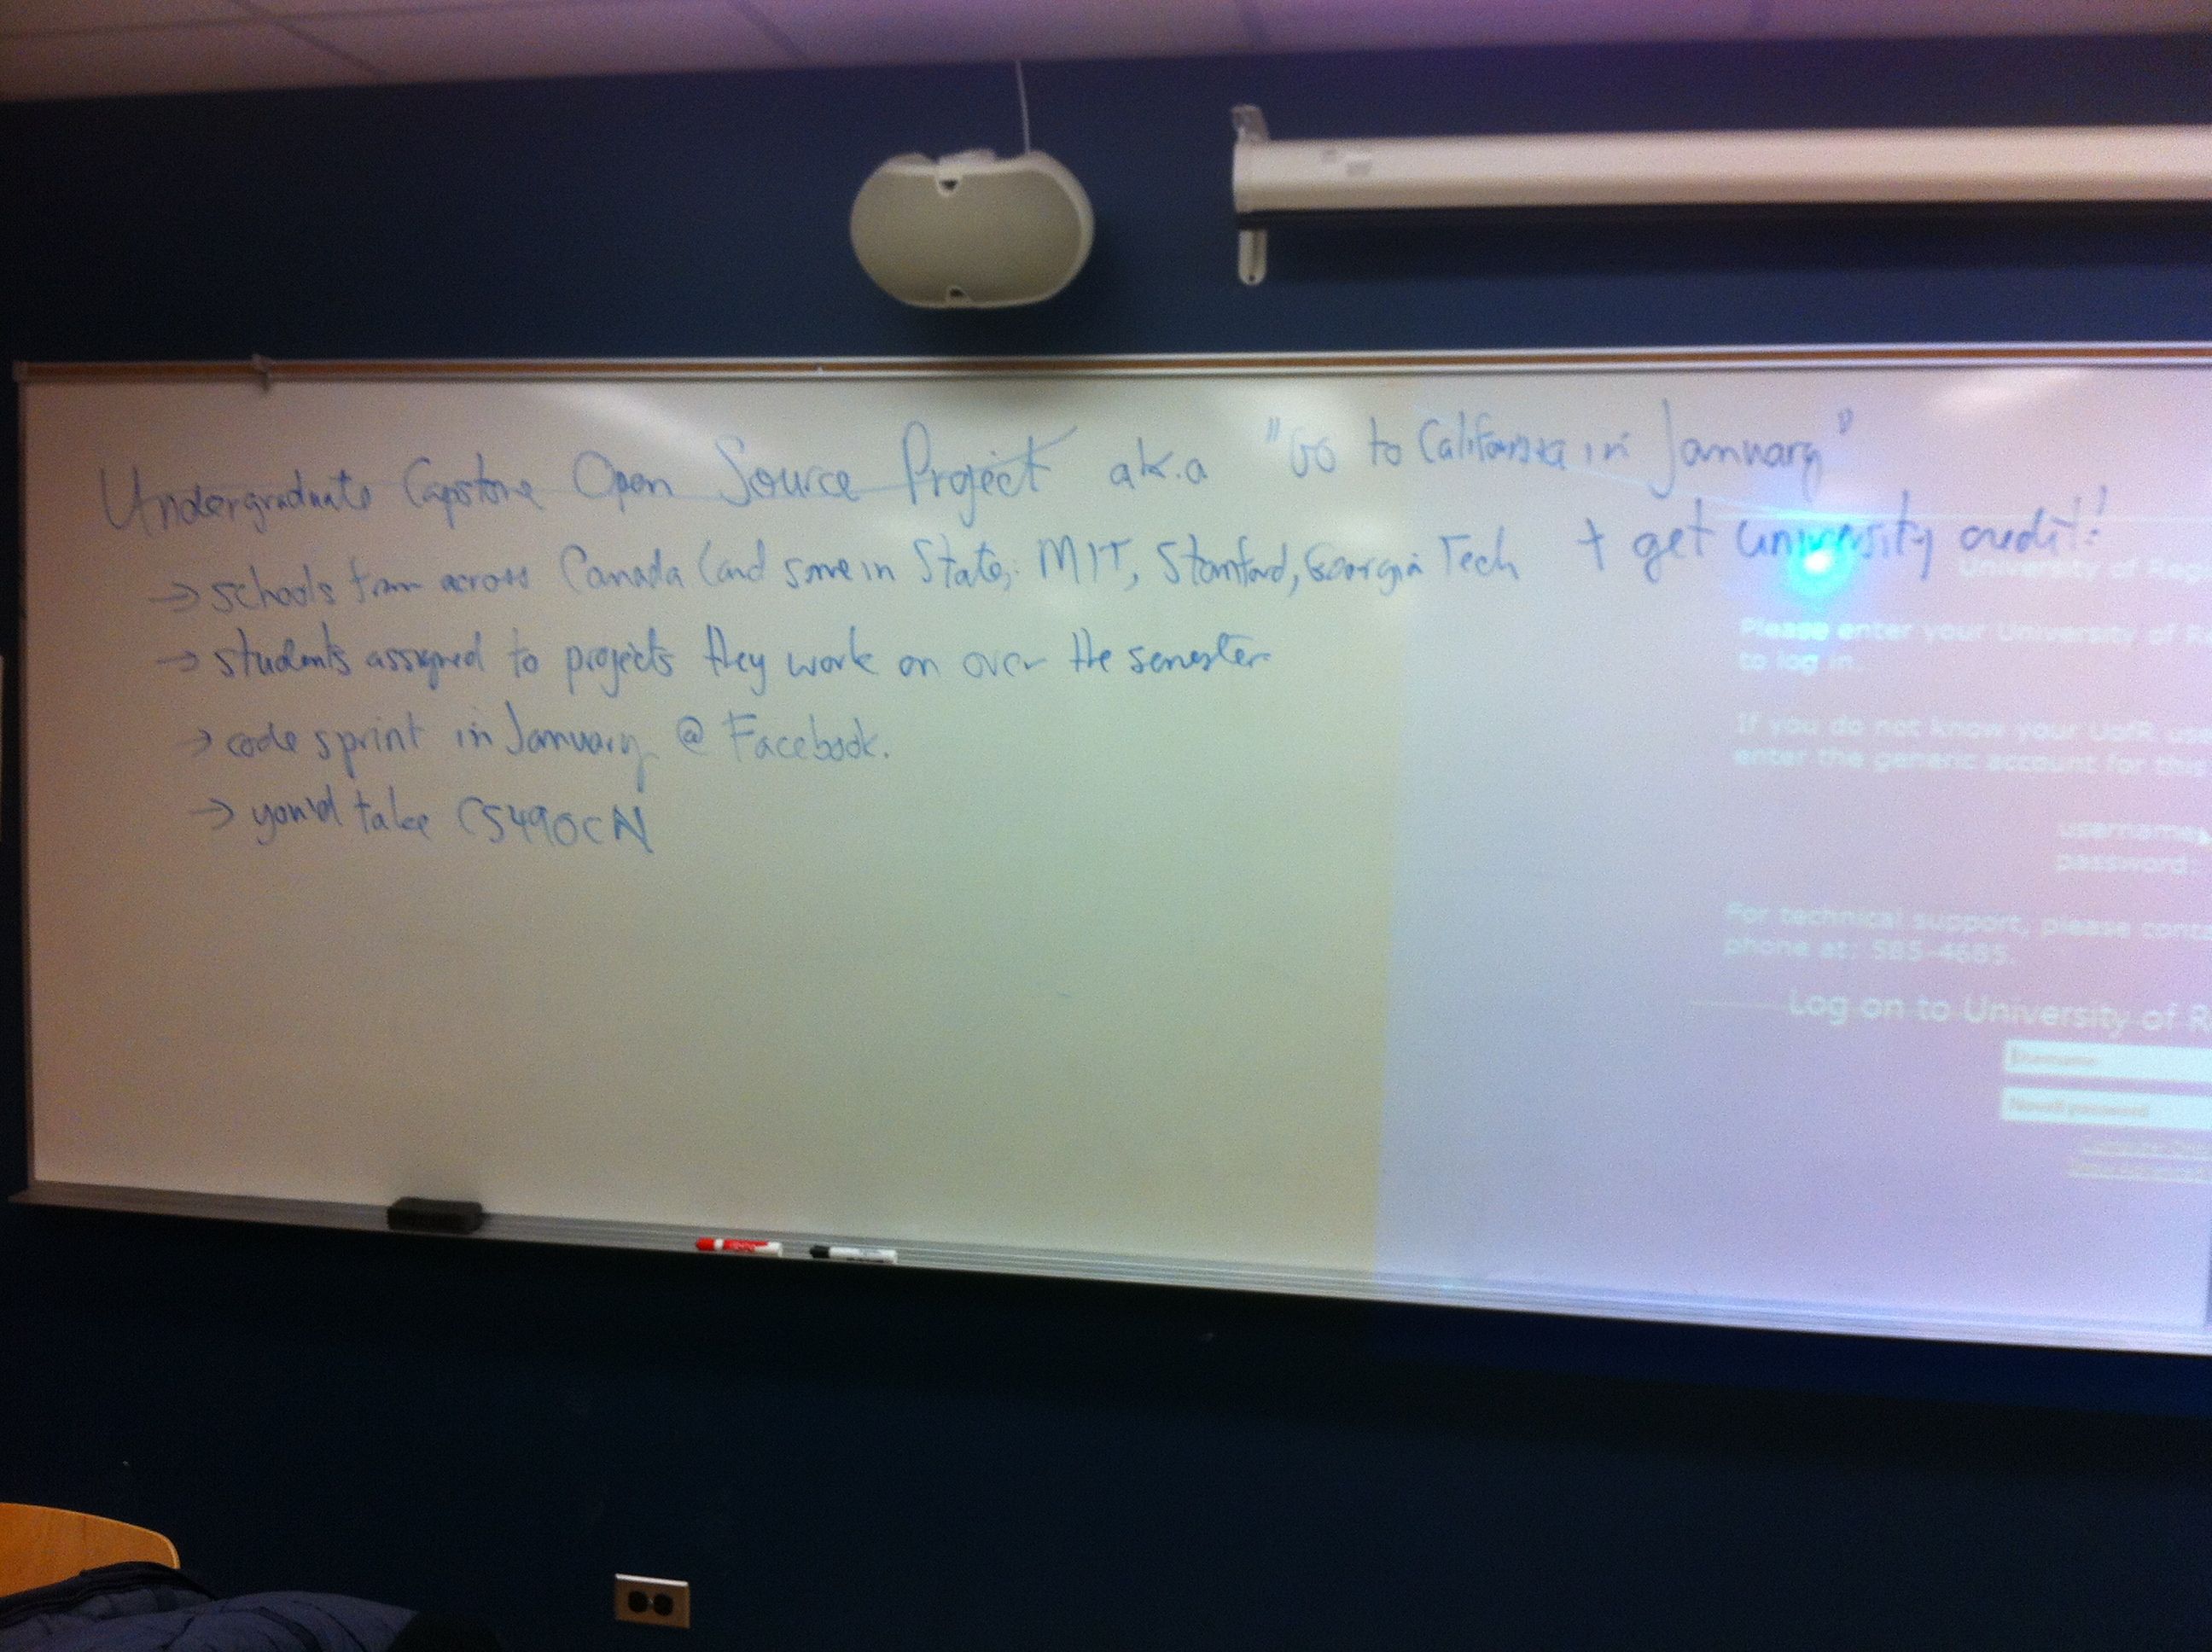 Undergraduate Capstone Open Source Project a.k.a "Go to California in January"
+ get university credit!
→ schools from across Canada (and some in States: MIT, Stanford, Georgia Tech
→ students assigned to projects they work on over the semester
→ code sprint in January @ Facebook.
→ you'd take CS490CN
University of Reg
Please enter your University of R
to log in
If you do not know your UofR use
enter the generic account for this
username
password:
For technical support, please conta
phone at: 585-4685.
Log on to University of R
Username
Novell password